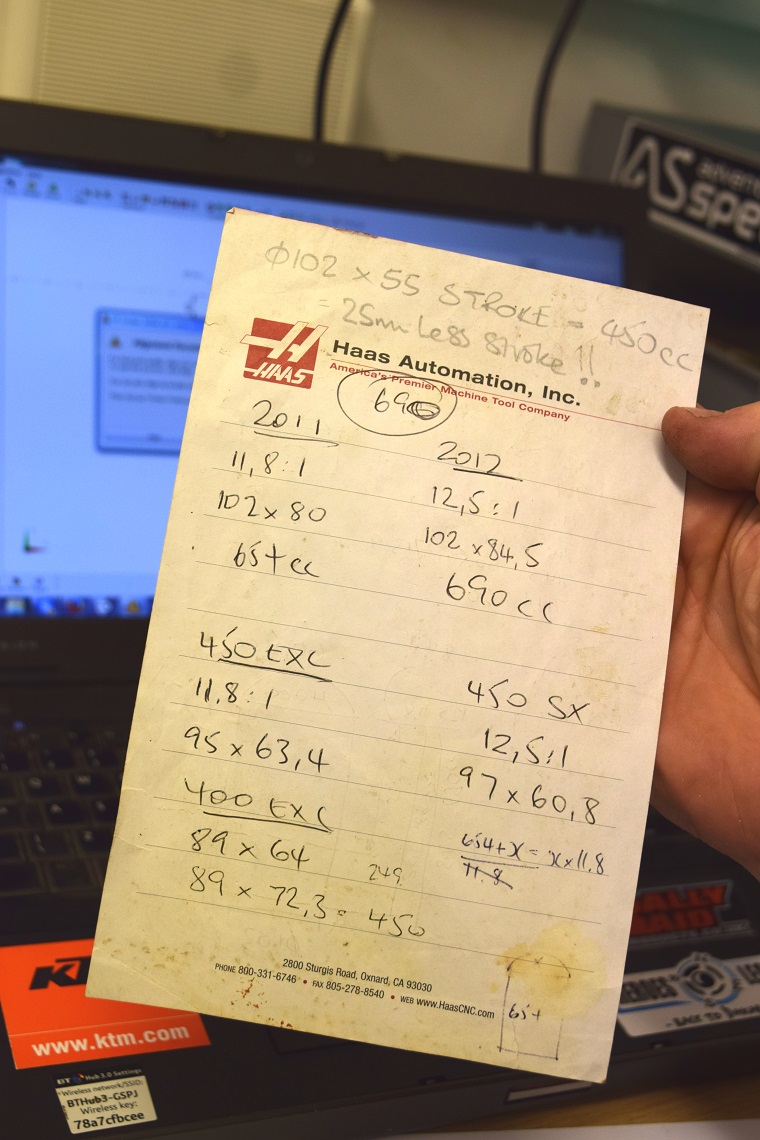 AS adven
spe
Φ102 x 55 STROKE = 450cc
= 25mm Less stroke!!
HAAS
Haas Automation, Inc.
America's Premier Machine Tool Company
690
2011
11,8:1
102 x 80
654cc
2012
12,5:1
102 x 84,5
690cc
450 EXC
11.8:1
95 x 63,4
450 SX
12,5:1
97 x 60,8
400 EXC
89 x 64
89 x 72,3 = 450
249
654+x = x x 11.8
11.8
654
2800 Sturgis Road, Oxnard, CA 93030
PHONE 800-331-6746 • FAX 805-278-8540 • WEB www.HaasCNC.com
KT
www.ktm.com
BT Hub 3.0 Settings
Wireless network/SSID:
BTHub3-GSPJ
Wireless key:
78a7cfbcee